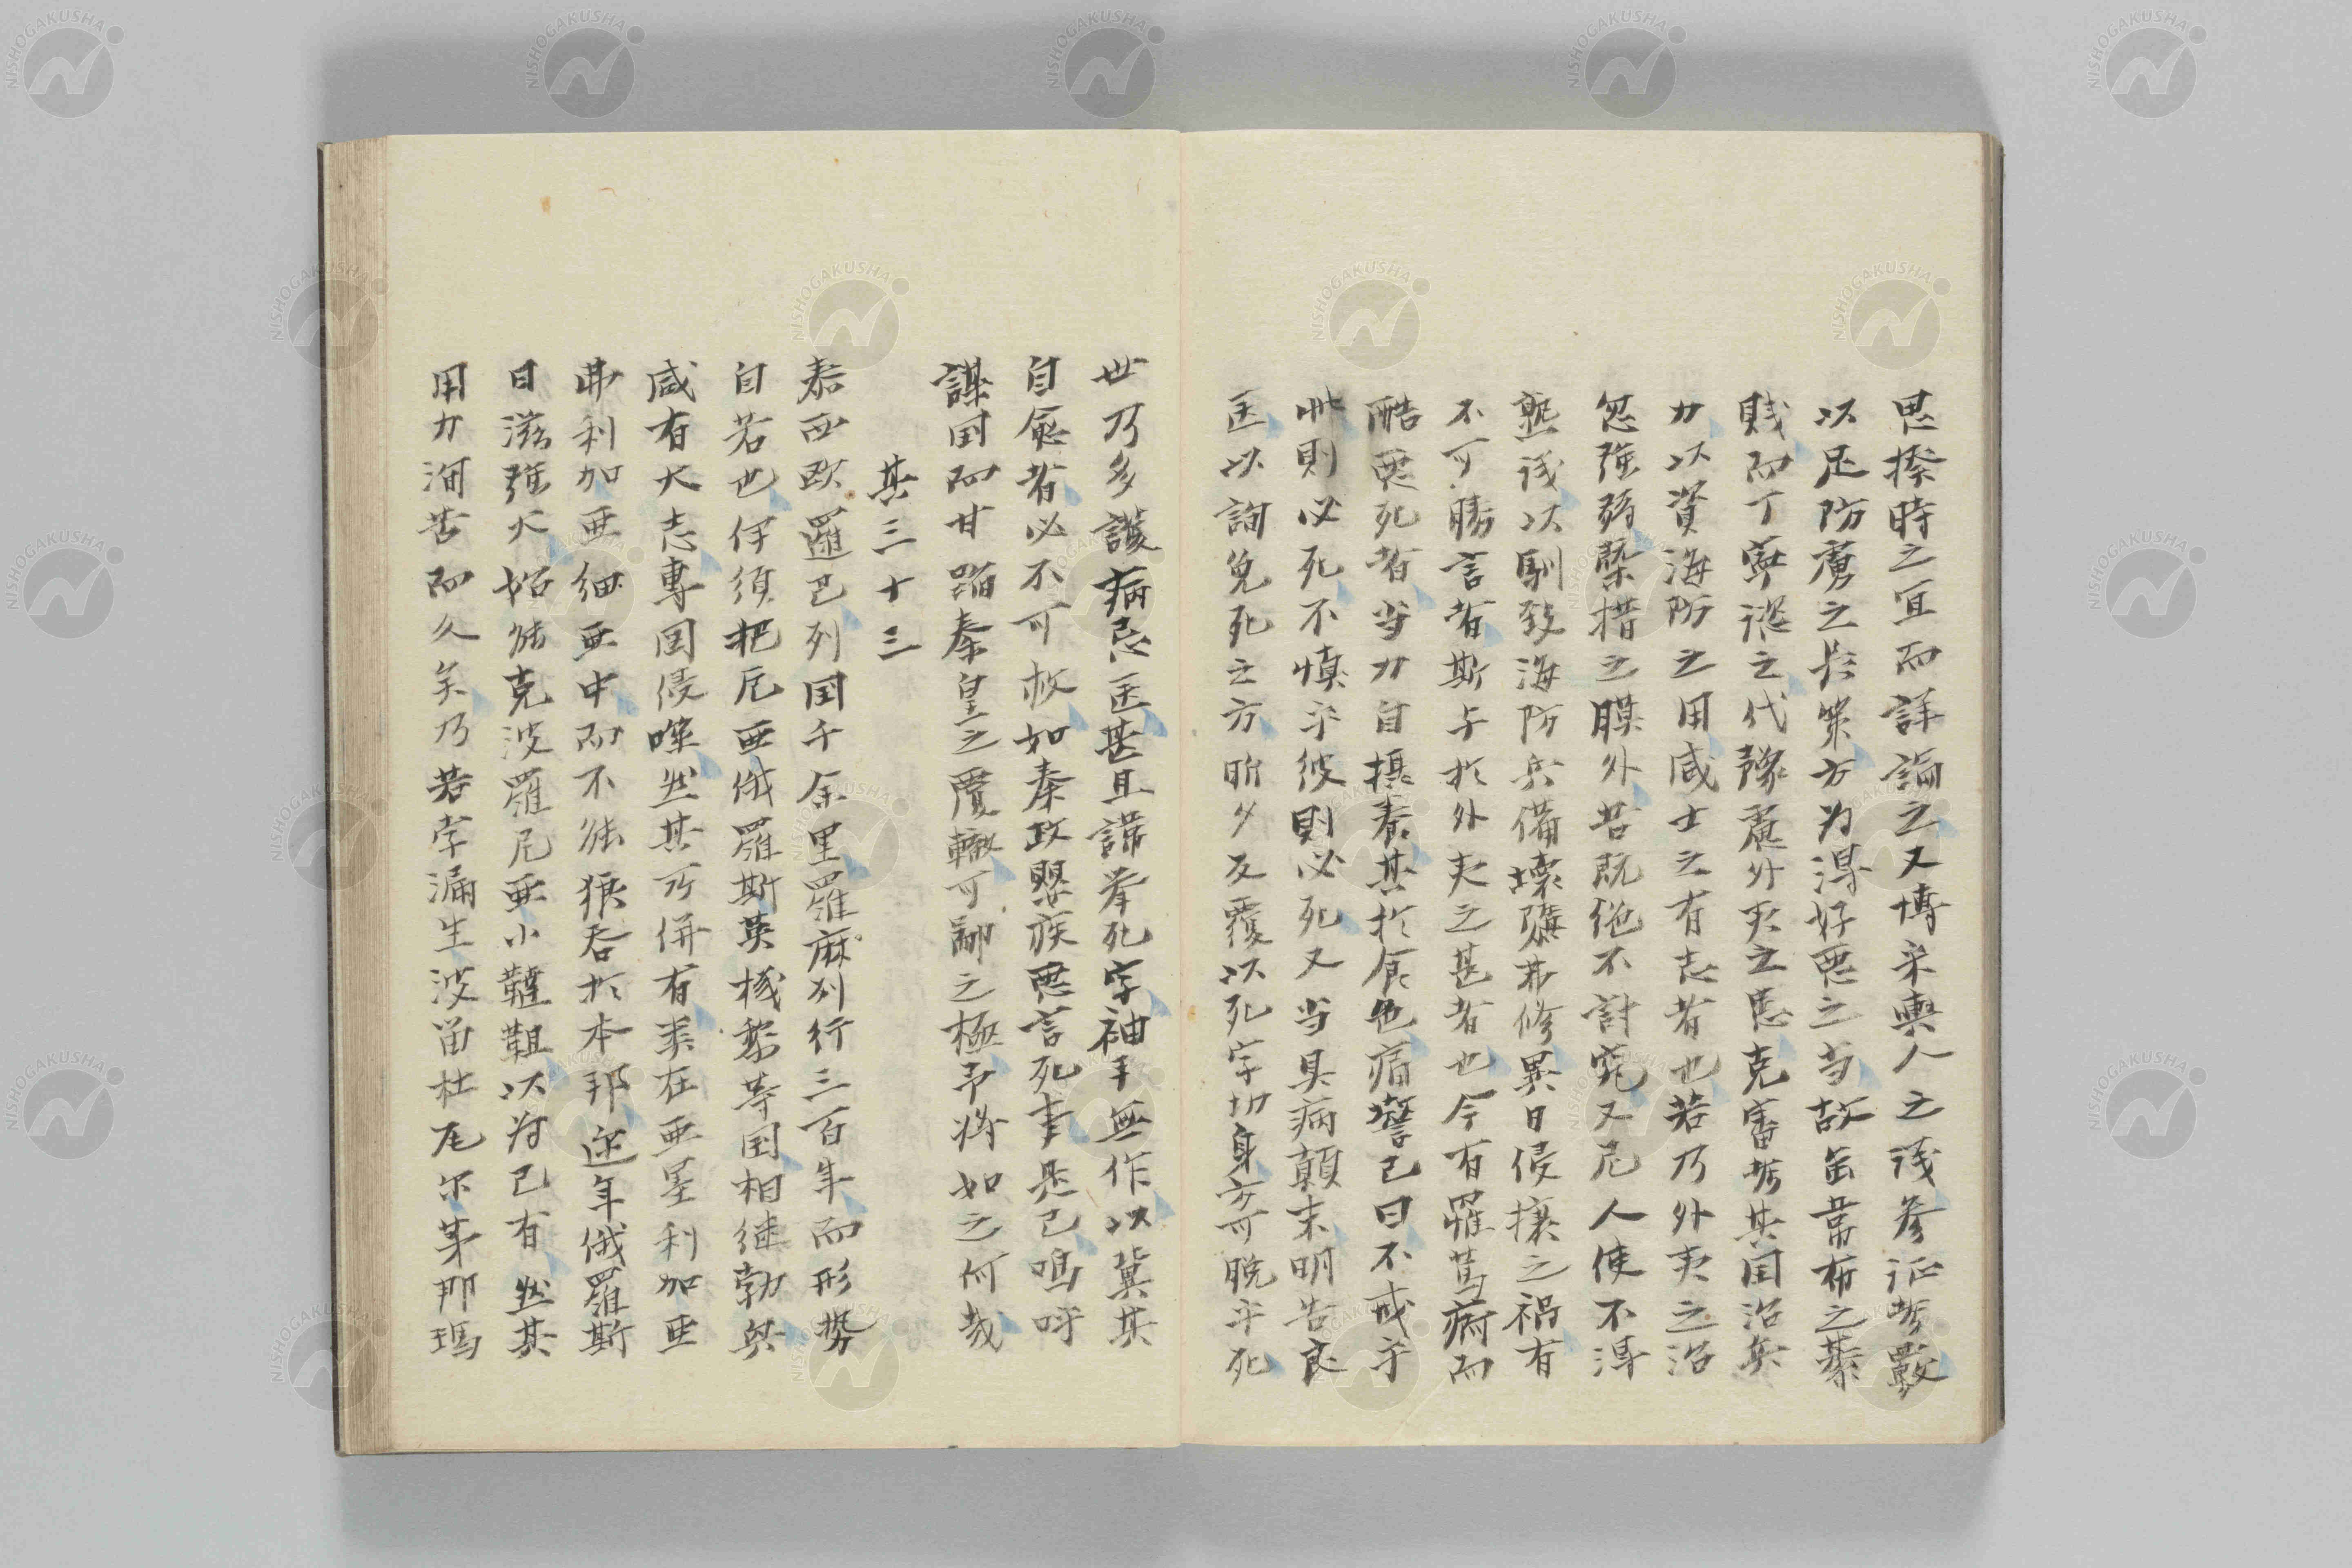 思揆時之宜而詳論之又博采輿人之議参証考覈
以足防虜之長策方為得好悪之当故缶常布之藁
賎而丁寧認之代豫慮外夷之患克審考其国治兵
力以資海防之用咸士之有志者也若乃外夷之治
忽強弱槩措之膜外苦既絶不討究又尼人使不得
熟議以馴致海防兵備壊隳弗修異日侵攘之禍有
不可勝言者斯与於外夷之甚者也今有罹篤病而
酷悪死者当力自摂養其於食色痛警己曰不戒乎
此則必死不慎乎彼則必死又当具病顛末明告良
医以詢免死之方所夕反覆以死字切身摩可脱乎死
世乃多護病忌医甚且諱挙死字袖手無作以冀其
自愈者必不可救如秦政嬰疾悪言死事是已嗚呼
謀国而甘蹈秦皇之覆轍可鄙之極予将如之何哉
其三十三
泰西欧邏巴列国千余里羅麻列行三百年而形勢
自若也伊須把尼亜俄羅斯英機黎等国相継勃興
咸有大志専国侵噬然其所併有業在亜墨利加亜
弗利加亜細亜中而不能狼呑於本邦逆年俄羅斯
日滋強大始能克波羅尼亜小韃靼以為己有然其
用力洵苦而久矣乃若孛漏生波留杜瓦尓茅那瑪